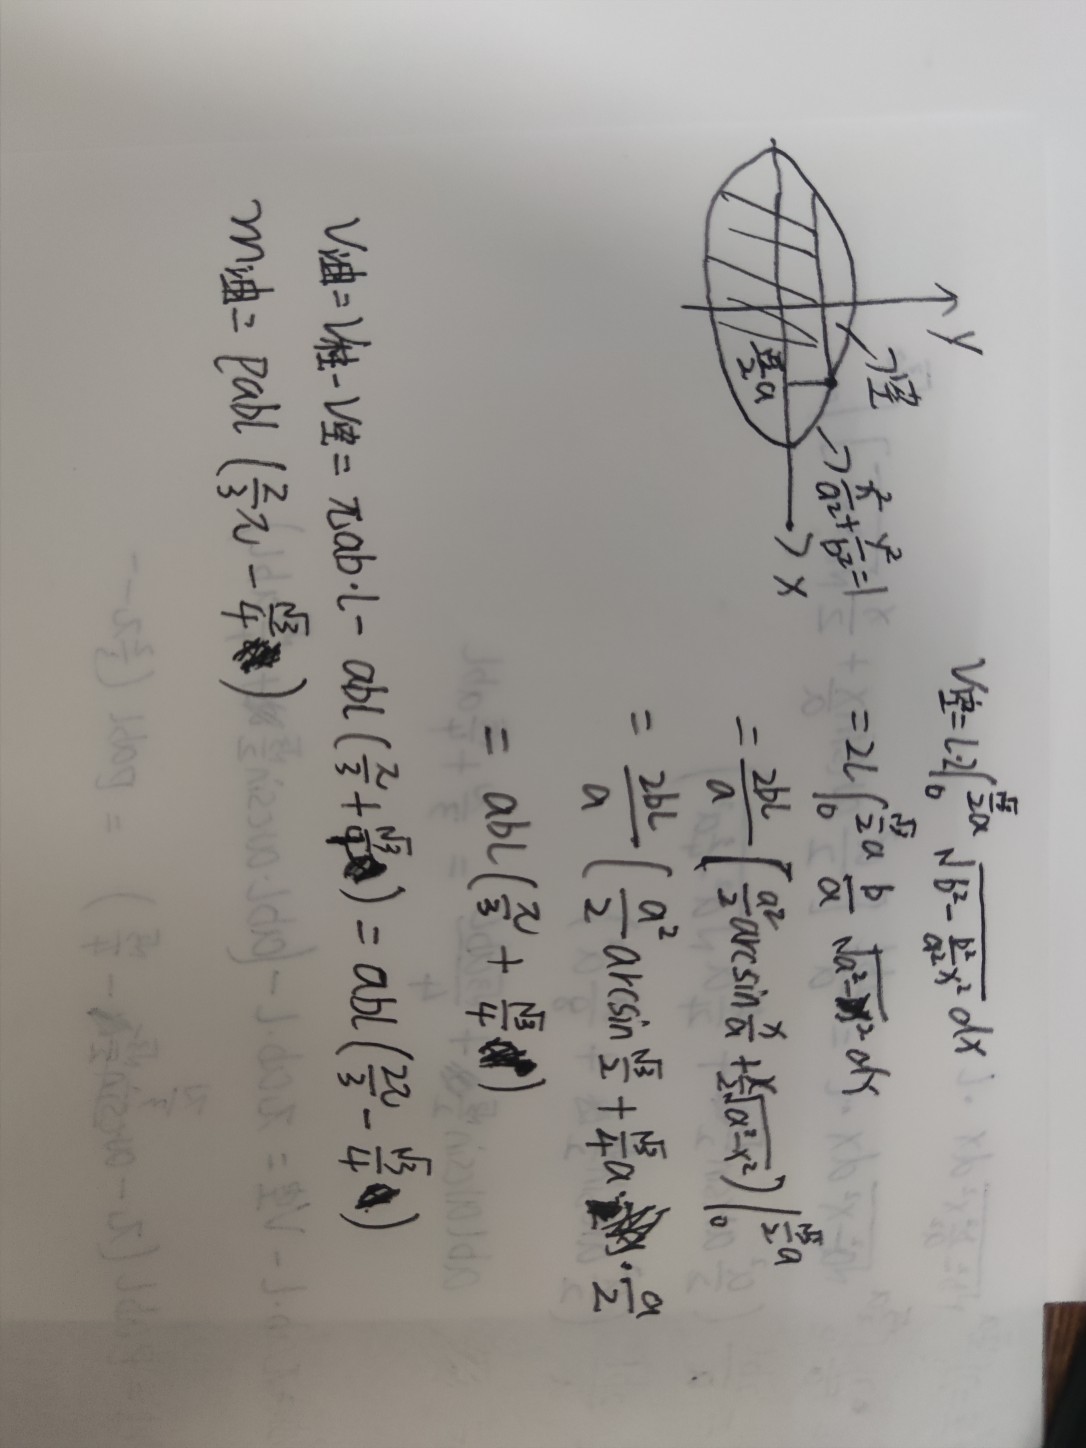 y
V空
x²/a² + y²/b² = 1
x
√3/2 a
V空 = L·2∫₀^(√3/2 a) √(b² - b²/a² x²) dx
= 2L∫₀^(√3/2 a) b/a √(a² - x²) dx
= 2bL/a (a²/2 arcsin x/a + x/2 √(a² - x²)) |₀^(√3/2 a)
= 2bL/a (a²/2 arcsin √3/2 + √3/4 a · a/2)
= abL(π/3 + √3/4)
V油 = V柱 - V空 = πab·L - abL(π/3 + √3/4) = abL(2π/3 - √3/4)
m油 = ρabL(2/3 π - √3/4)